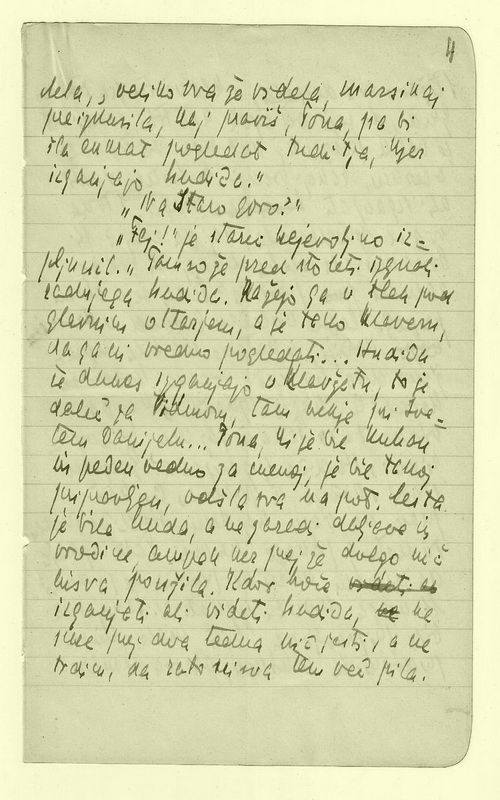 4
dela, „veliko sva že videla, marsikaj
preizkusila, kaj praviš, Tona, pa bi
šla enkrat pogledat tudi tja, kjer
izganjajo hudiča."
„Na Staro goro?"
„Fej!" je stari nejevoljno iz-
pljunil. „Tam so že pred sto leti izgnali
zadnjega hudiča. Kažejo ga v tleh pod
glavnim oltarjem, a je tako klavern,
da ga ni vredno pogledati... Hudiča
še danes izganjajo v Klavžetu, to je
daleč za Vidmom, tam nekje pri Sve-
tem Danijelu... Tona, ki je bil
in peden vedno za menoj, je bil takoj
pripravljen, odšla sva na pot. Cesta
je bila huda, a ne zaradi daljave in
vročine, ampak ker prej že dolgo nič
nisva použila. Kdor hoče videti al
izganjati ali videti hudiča, ne ne
sme prej dva tedna nič jesti, a ne
trdim, da zato nisva tem več pila.